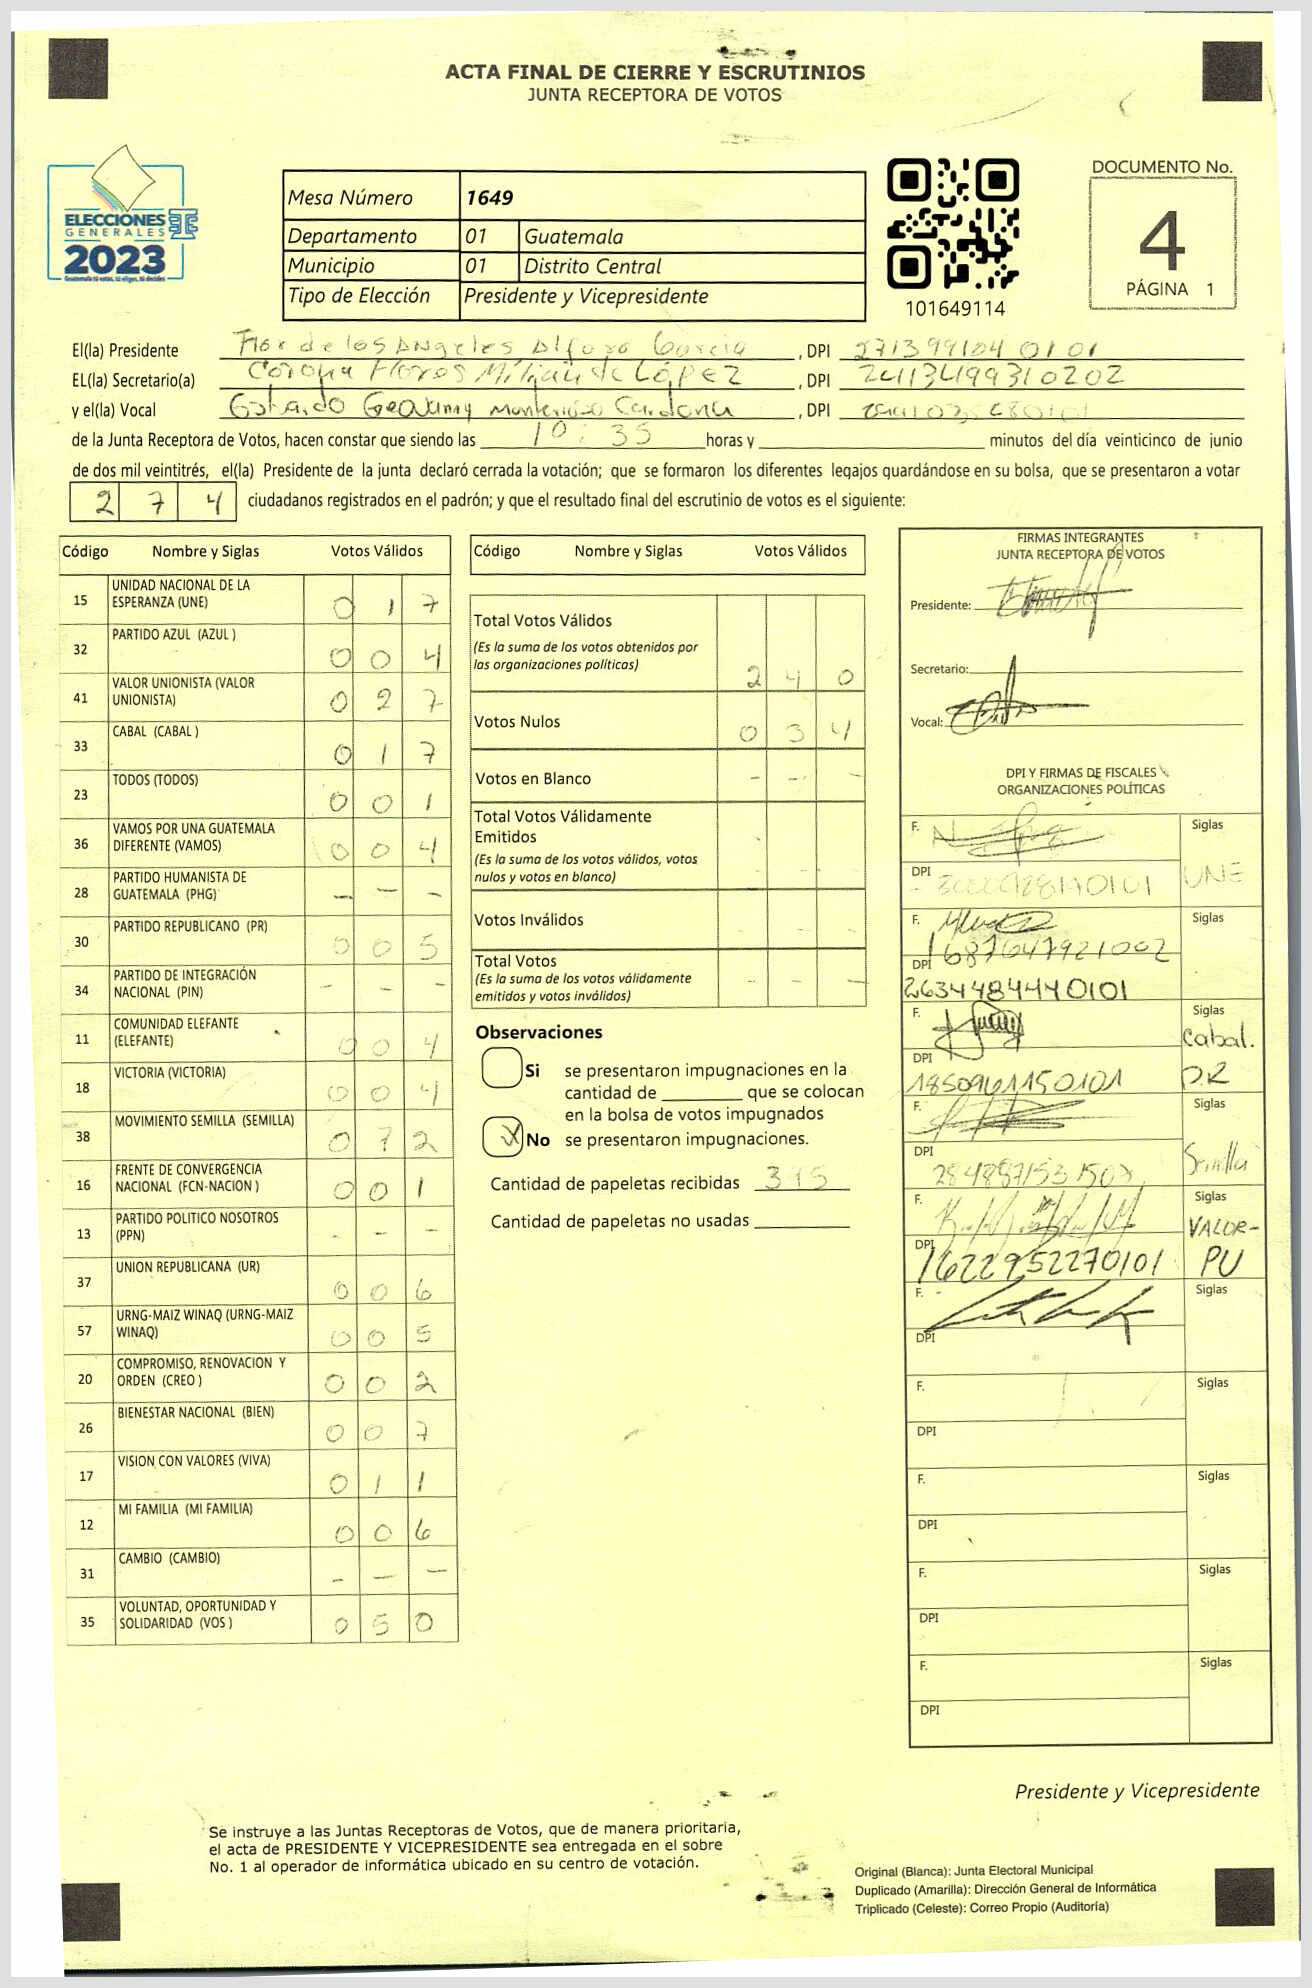 ACTA FINAL DE CIERRE Y ESCRUTINIOS
JUNTA RECEPTORA DE VOTOS
ELECCIONES
GENERALES
2023
Mesa Número 1649
Departamento 01 Guatemala
Municipio 01 Distrito Central
Tipo de Elección Presidente y Vicepresidente
101649114
DOCUMENTO No.
4
PÁGINA 1
El(la) Presidente Flor de los Angeles Alfaro Garcia, DPI
EL(la) Secretario(a) Corona Flores Milian de López, DPI 2411349930202
y el(la) Vocal Cardona, DPI
de la Junta Receptora de Votos, hacen constar que siendo las 10:35 horas y minutos del día veinticinco de junio
de dos mil veintitrés, el(la) Presidente de la junta declaró cerrada la votación; que se formaron los diferentes legajos guardándose en su bolsa, que se presentaron a votar
274 ciudadanos registrados en el padrón; y que el resultado final del escrutinio de votos es el siguiente:
Código Nombre y Siglas Votos Válidos
15 UNIDAD NACIONAL DE LA ESPERANZA (UNE) 017
32 PARTIDO AZUL (AZUL ) 004
41 VALOR UNIONISTA (VALOR UNIONISTA) 027
33 CABAL (CABAL ) 017
23 TODOS (TODOS) 001
36 VAMOS POR UNA GUATEMALA DIFERENTE (VAMOS) 004
28 PARTIDO HUMANISTA DE GUATEMALA (PHG) - - -
30 PARTIDO REPUBLICANO (PR) 005
34 PARTIDO DE INTEGRACIÓN NACIONAL (PIN) - - -
11 COMUNIDAD ELEFANTE (ELEFANTE) 004
18 VICTORIA (VICTORIA) 004
38 MOVIMIENTO SEMILLA (SEMILLA) 072
16 FRENTE DE CONVERGENCIA NACIONAL (FCN-NACION ) 001
13 PARTIDO POLITICO NOSOTROS (PPN) - - -
37 UNION REPUBLICANA (UR) 006
57 URNG-MAIZ WINAQ (URNG-MAIZ WINAQ) 005
20 COMPROMISO, RENOVACION Y ORDEN (CREO ) 002
26 BIENESTAR NACIONAL (BIEN) 007
17 VISION CON VALORES (VIVA) 011
12 MI FAMILIA (MI FAMILIA) 006
31 CAMBIO (CAMBIO) - - -
35 VOLUNTAD, OPORTUNIDAD Y SOLIDARIDAD (VOS ) 050
Código Nombre y Siglas Votos Válidos
Total Votos Válidos 240
(Es la suma de los votos obtenidos por
las organizaciones políticas)
Votos Nulos 034
Votos en Blanco - - -
Total Votos Válidamente
Emitidos
(Es la suma de los votos válidos, votos
nulos y votos en blanco) - - -
Votos Inválidos - - -
Total Votos - - -
(Es la suma de los votos válidamente
emitidos y votos inválidos)
Observaciones
Si se presentaron impugnaciones en la
cantidad de que se colocan
en la bolsa de votos impugnados
X No se presentaron impugnaciones.
Cantidad de papeletas recibidas 395
Cantidad de papeletas no usadas
FIRMAS INTEGRANTES
JUNTA RECEPTORA DE VOTOS
Presidente:
Secretario:
Vocal:
DPI Y FIRMAS DE FISCALES
ORGANIZACIONES POLÍTICAS
F. Siglas
DPI UNE
F. Siglas
1687647921002
DPI
2634484440101
F. Siglas
Cabal.
DPI
1850961150101 PR
F. Siglas
DPI Semilla
F. Siglas
VALOR-
DPI 1622952270101 PU
F. Siglas
DPI
F. Siglas
DPI
F. Siglas
DPI
F. Siglas
DPI
F. Siglas
DPI
Presidente y Vicepresidente
Se instruye a las Juntas Receptoras de Votos, que de manera prioritaria,
el acta de PRESIDENTE Y VICEPRESIDENTE sea entregada en el sobre
No. 1 al operador de informática ubicado en su centro de votación.
Original (Blanca): Junta Electoral Municipal
Duplicado (Amarilla): Dirección General de Informática
Triplicado (Celeste): Correo Propio (Auditoría)